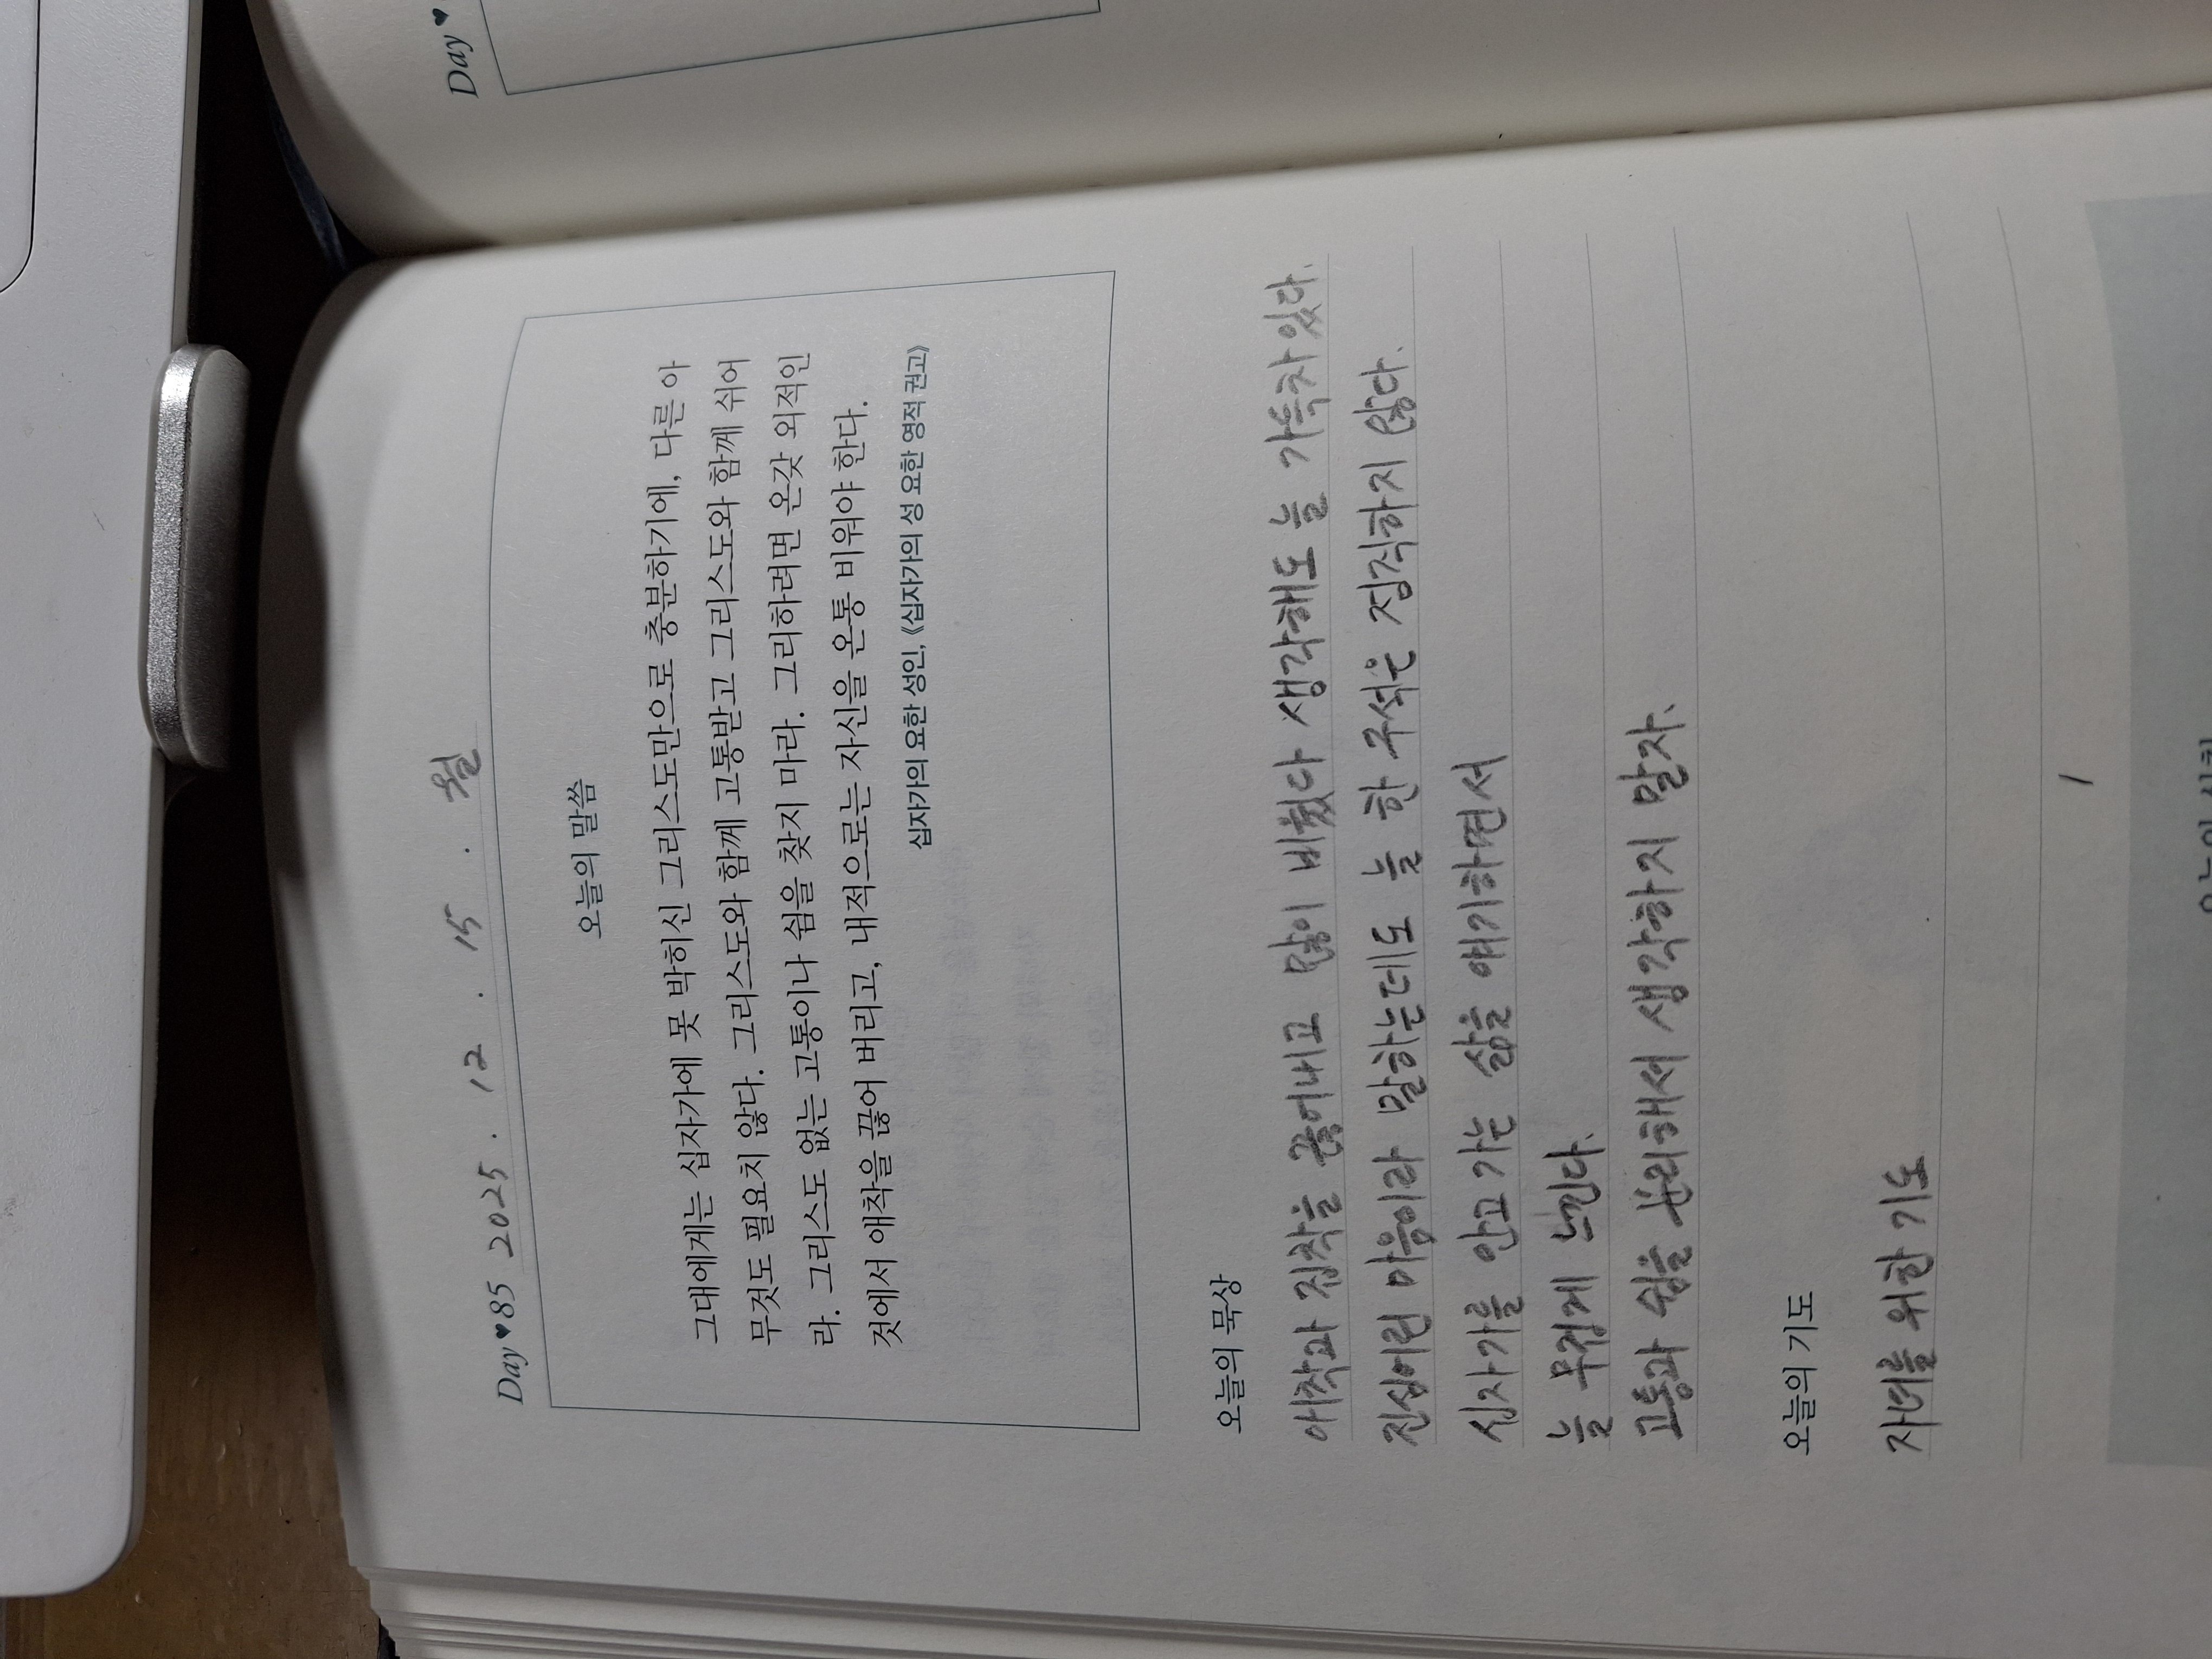 Day ♥
Day ♥ 85 2025 . 12 . 15 . 월
오늘의 말씀
그대에게는 십자가에 못 박히신 그리스도만으로 충분하기에, 다른 아
무것도 필요치 않다. 그리스도와 함께 고통받고 그리스도와 함께 쉬어
라. 그리스도 없는 고통이나 쉼을 찾지 마라. 그리하려면 온갖 외적인
것에서 애착을 끊어 버리고, 내적으로는 자신을 온통 비워야 한다.
십자가의 요한 성인, 《십자가의 성 요한 영적 권고》
오늘의 묵상
애착과 집착을 끊어내고 많이 비웠다 생각해도 늘 가득차 있다.
진심어린 마음이라 말하는데도 늘 한 구석은 정직하지 않다.
십자가를 안고 가는 삶을 얘기하면서
늘 무겁게 느낀다.
고통과 쉼을 분리해서 생각하지 말자.
오늘의 기도
자녀를 위한 기도